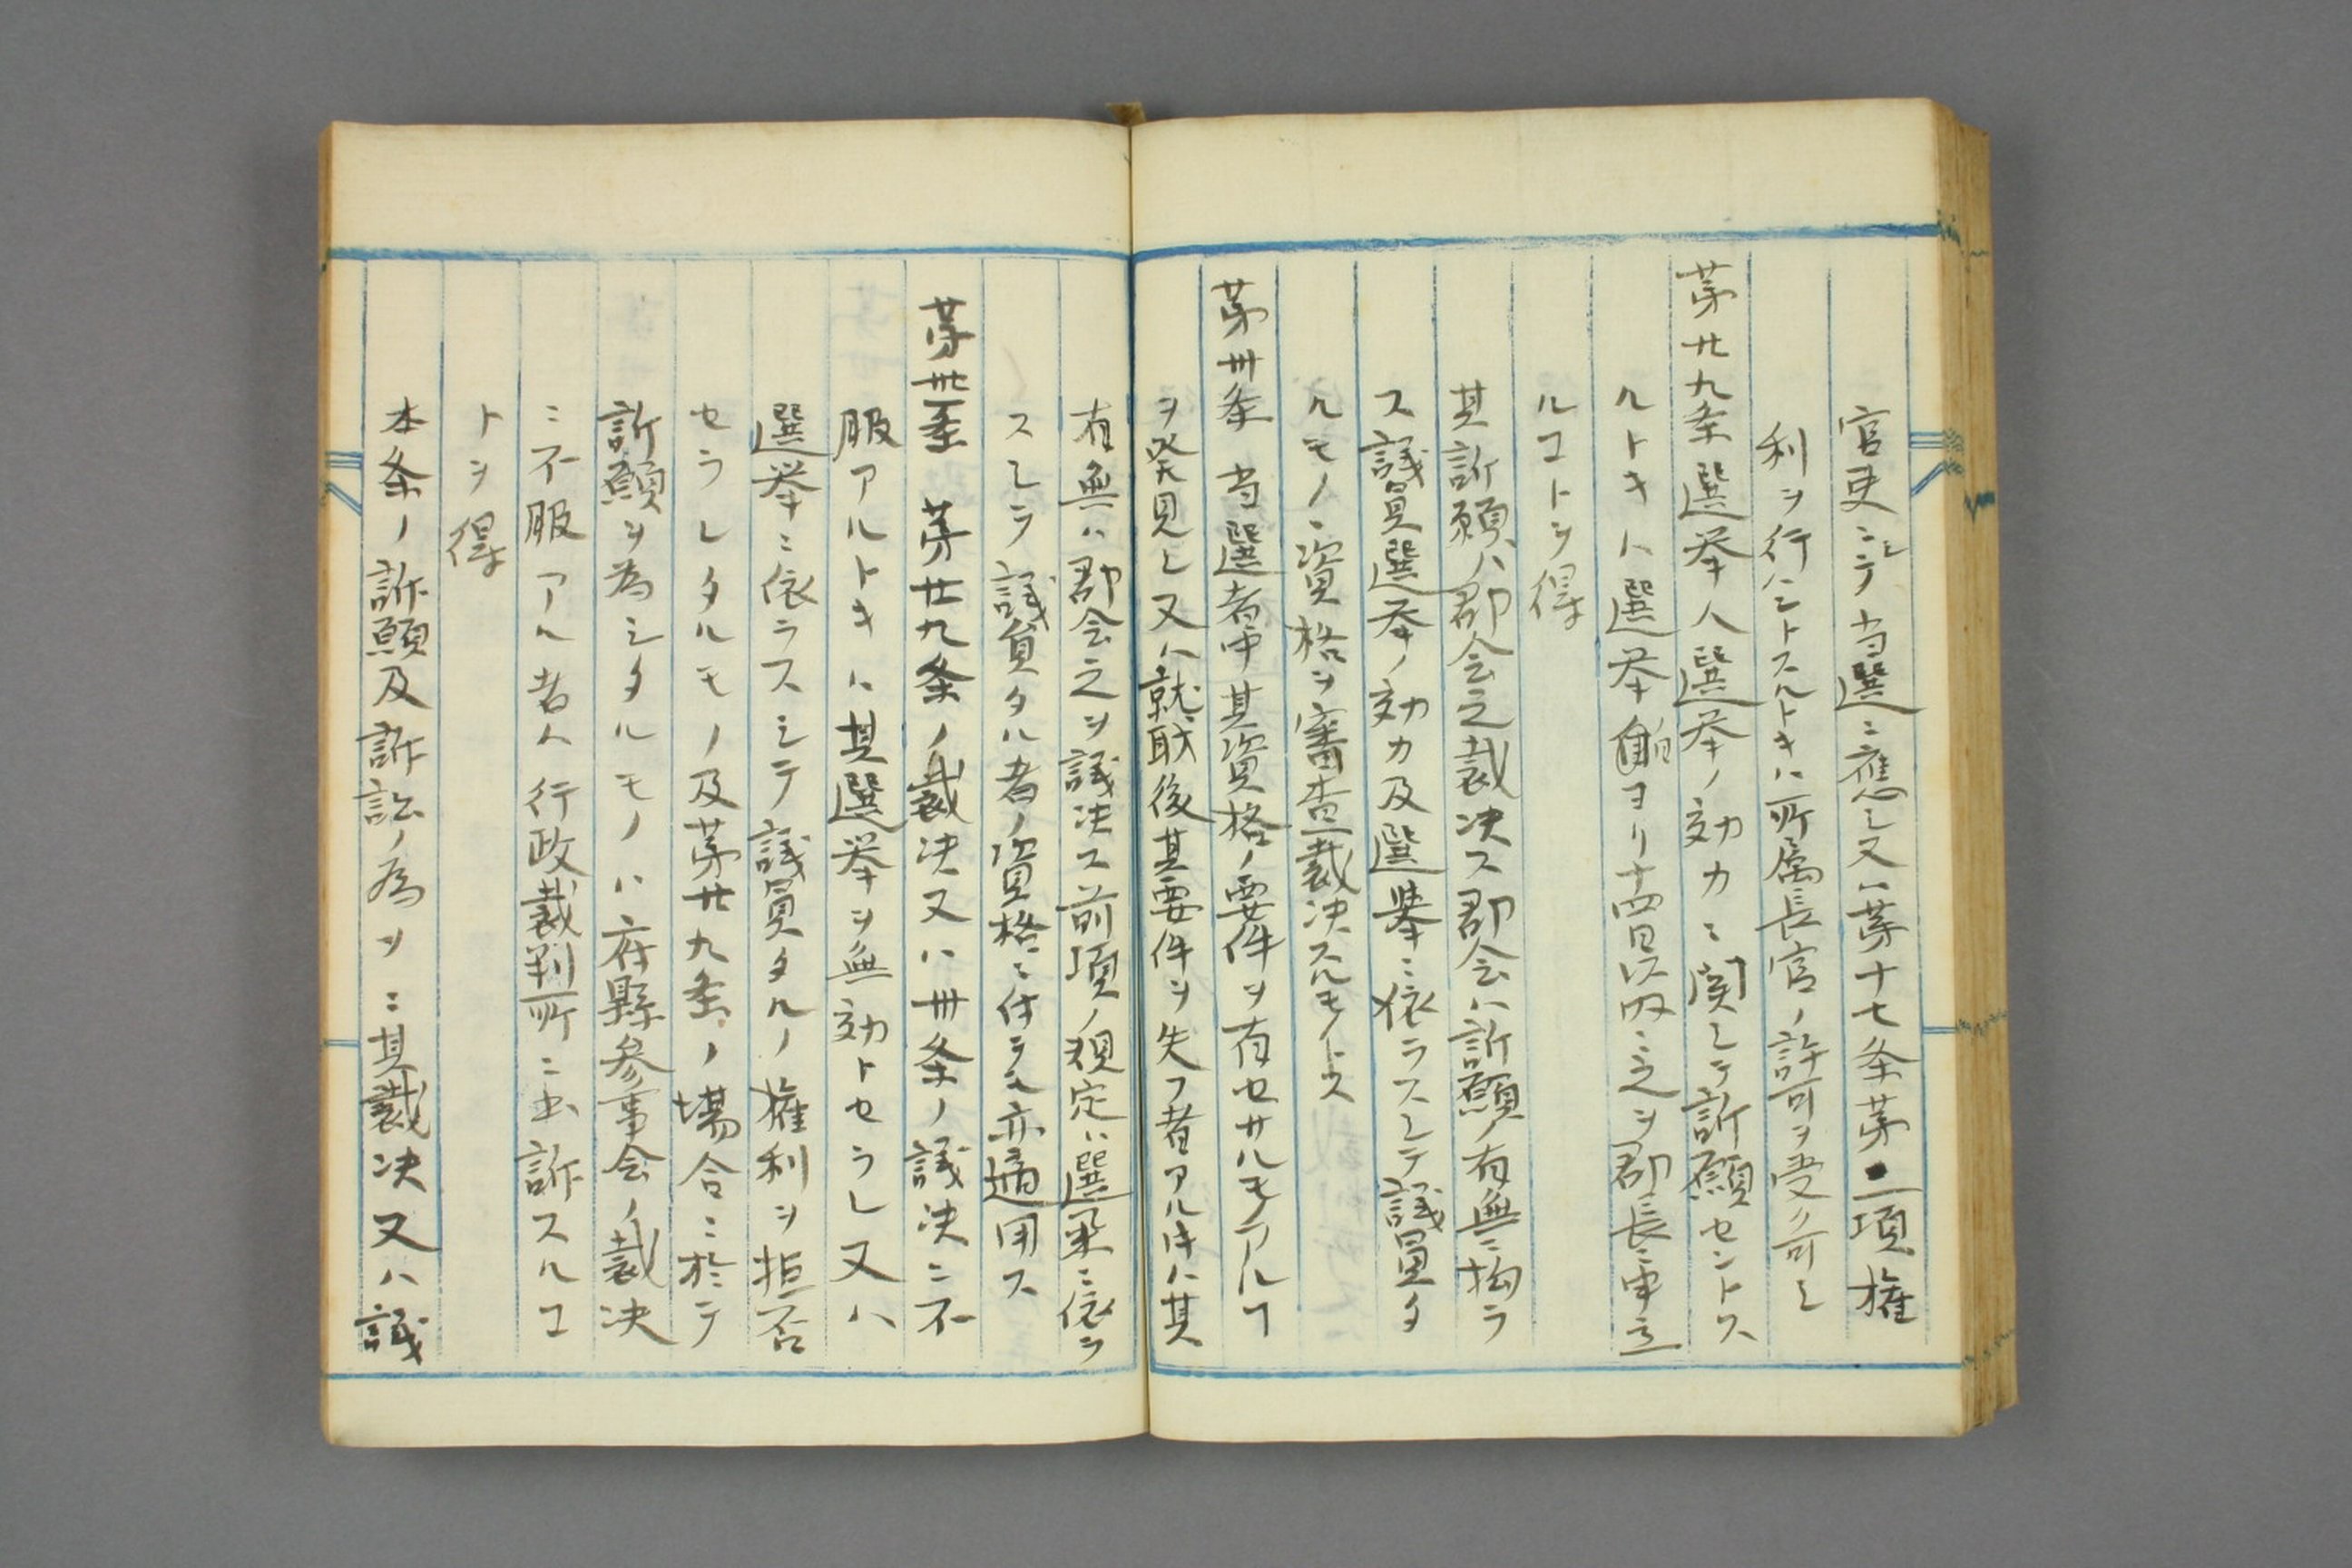 官吏ニシテ当選ニ應シ又ハ第十七条第二項権
利ヲ行ハントスルトキハ所属長官ノ許可ヲ受可シ
第廿九条 選挙人選挙ノ効力ニ関シテ訴願セントス
ルトキハ選挙 ヨリ十四日以内ニ之ヲ郡長ニ申立
ルコトヲ得
其訴願ハ郡会之ヲ裁决ス郡会ハ訴願ノ有無ニ拘ラ
ス議員選挙ノ効力及選挙ニ依ラスシテ議員タ
ルモノヽ資格ヲ審査裁决スルモノトス
第卅条 当選者中其資格ノ要件ヲ有セサルモノアルコ
ヲ発見シ又ハ就職後其要件ヲ失フ者アルトキハ其
有無ハ郡会之ヲ議决ス前項ノ規定ハ選挙ニ依ラ
スシテ議員タル者ノ資格ニ付テモ亦適用ス
第卅一条 第廿九条ノ裁决又ハ卅条ノ議决ニ不
服アルトキハ其選挙ヲ無効トセラレ又ハ
選挙ニ依ラスシテ議員タルノ権利ヲ拒否
セラレタルモノ及第廿九条ノ場合ニ於テ
訴願ヲ為シタルモノハ府縣参事会ノ裁决
ニ不服アル者ハ行政裁判所ニ出訴スルコ
トヲ得
本条ノ訴願及訴訟ノ為メニ其裁决又ハ議